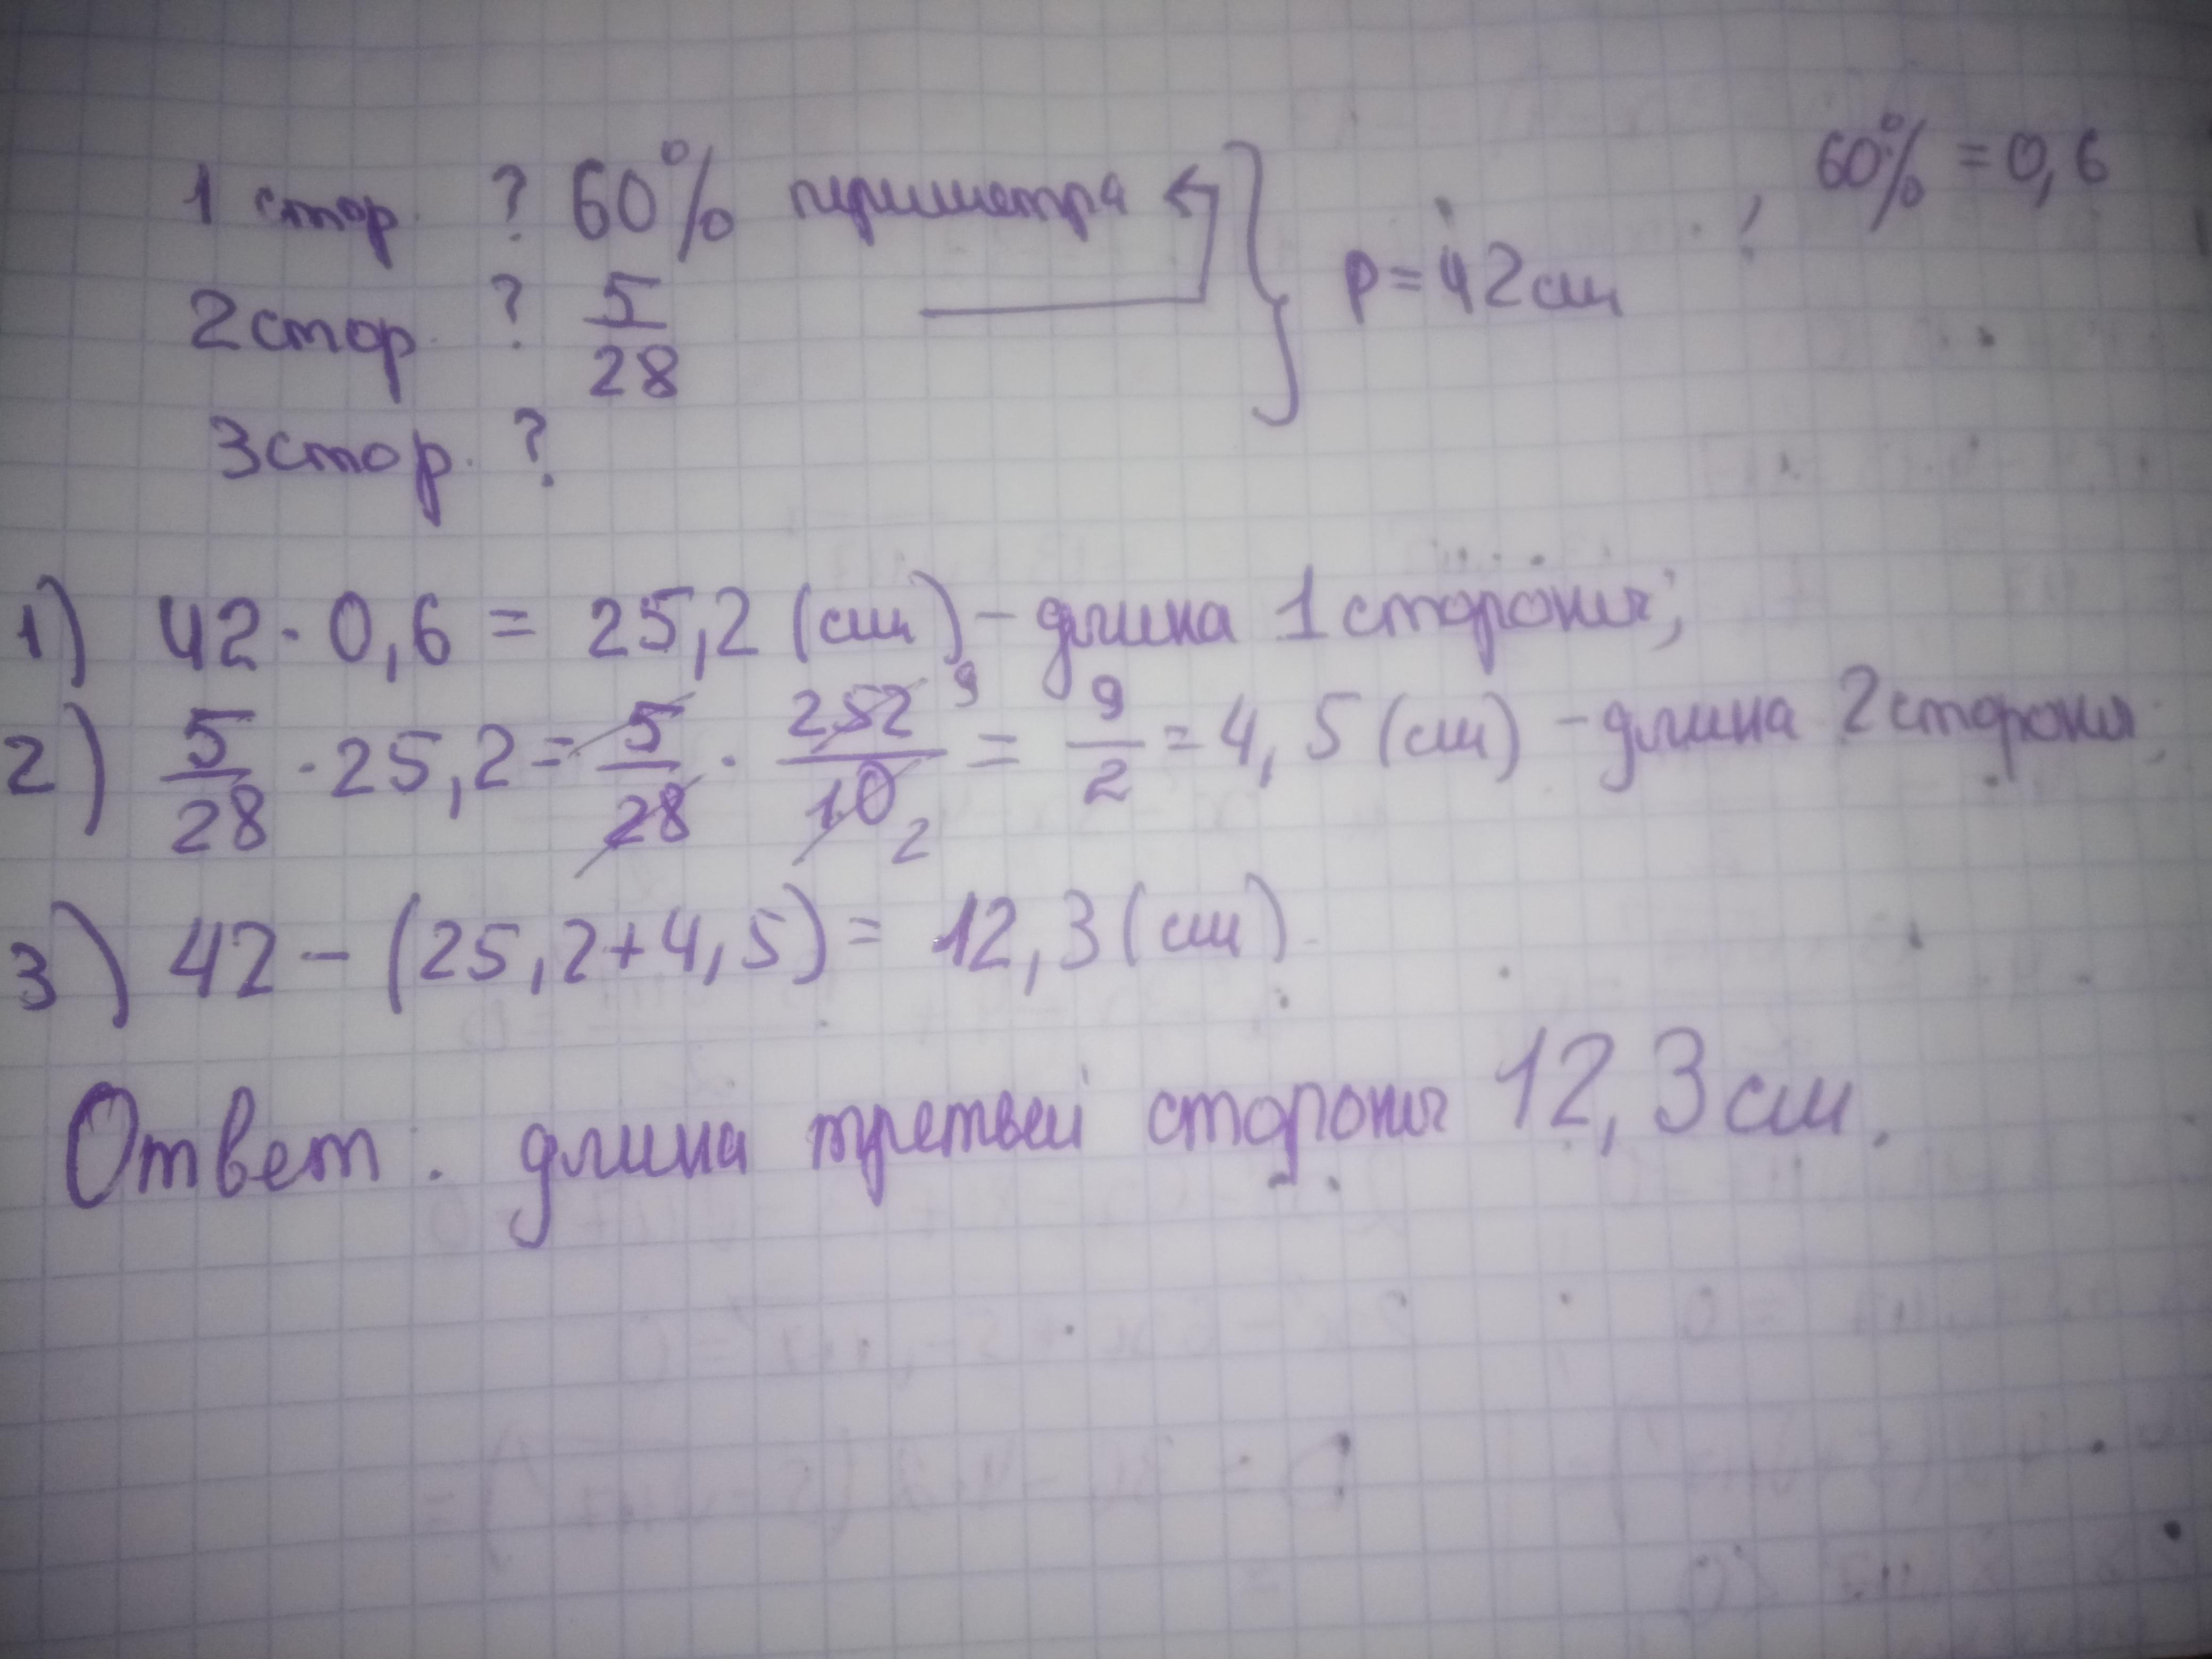 1 стор. ? 60% периметра , 60% = 0,6
2 стор. ? 5/28 } P = 42 см
3 стор. ?
1) 42 · 0,6 = 25,2 (см) – длина 1 стороны;
2) 5/28 · 25,2 = 5/28 · 252/10 9 2 = 9/2 = 4,5 (см) – длина 2 стороны;
3) 42 – (25,2+4,5) = 12,3 (см)
Ответ: длина третьей стороны 12,3 см.